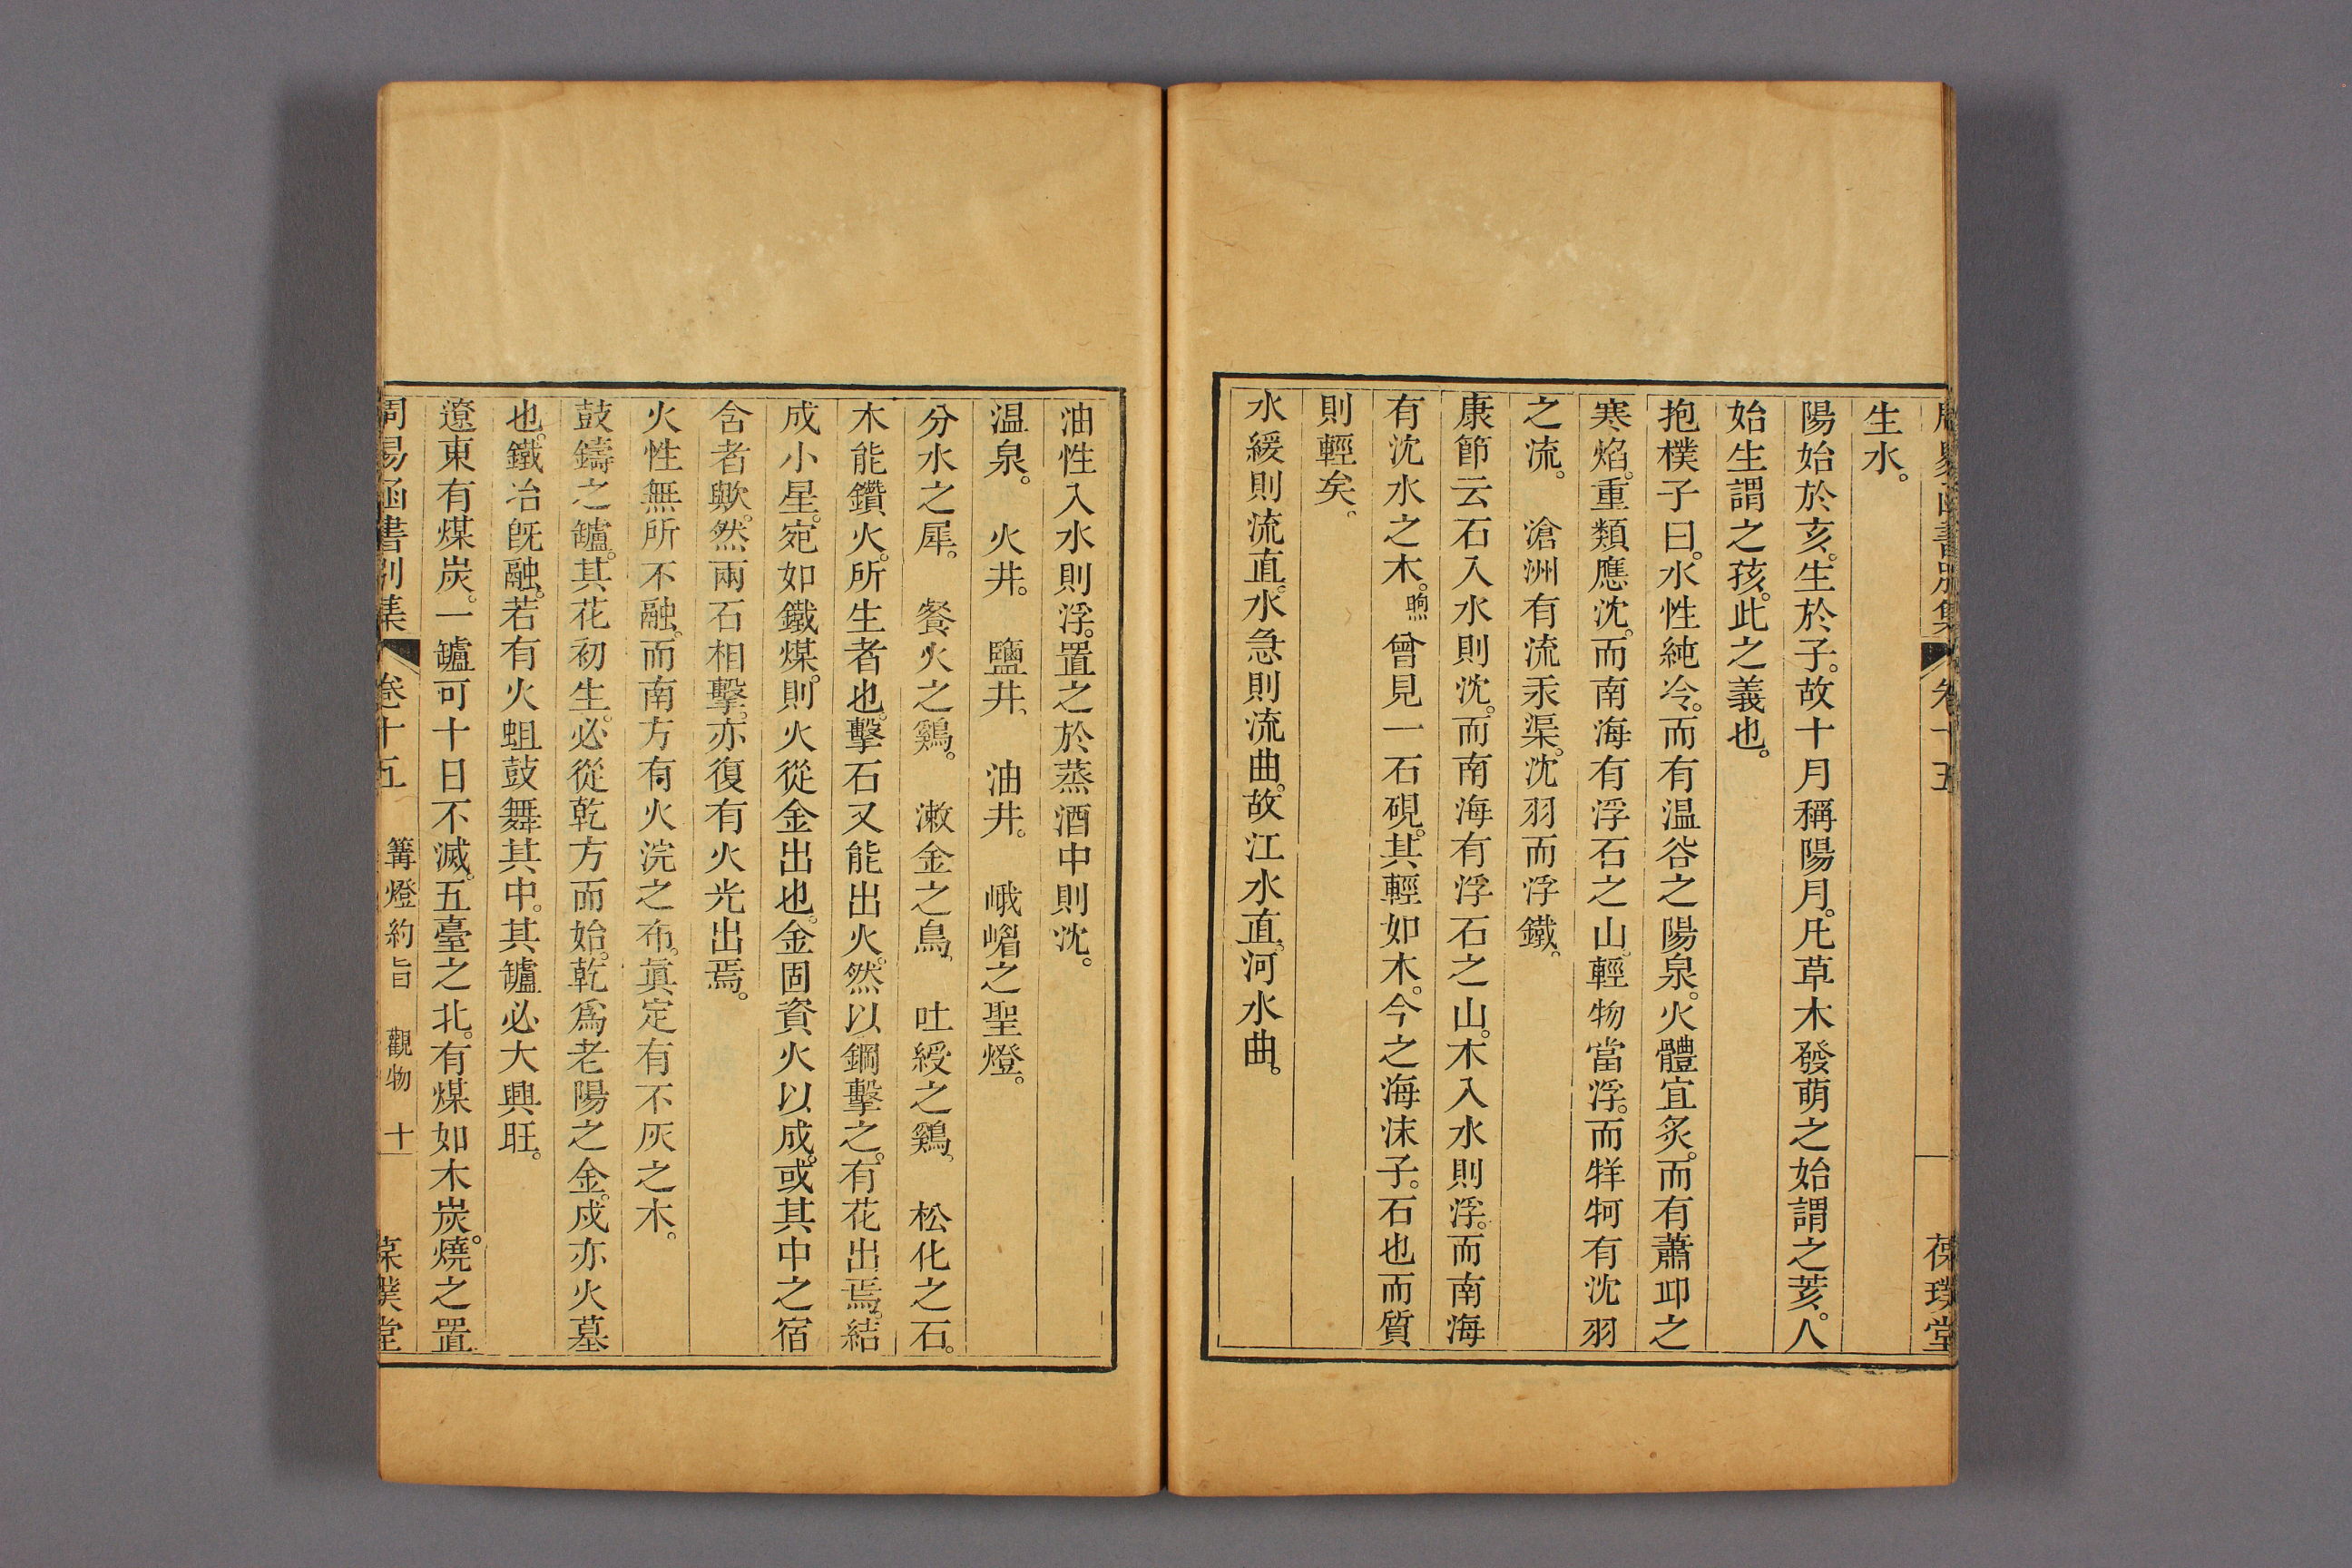 周易函書別集 卷十五 葆璞堂
生水。
陽始於亥。生於子。故十月稱陽月。凡草木發萌之始謂之荄。人
始生謂之孩。此之義也。
抱樸子曰。水性純冷。而有温谷之陽泉。火體宜炙。而有蕭邱之
寒焰。重類應沈。而南海有浮石之山。輕物當浮。而牂牁有沈羽
之流。 滄洲有流汞渠。沈羽而浮鐵。
康節云石入水則沈。而南海有浮石之山。木入水則浮。而南海
有沈水之木。煦曾見一石硯。其輕如木。今之海沫子。石也而質
則輕矣。
水緩則流直。水急則流曲。故江水直。河水曲。
油性入水則浮。置之於蒸酒中則沈。
温泉。 火井。 鹽井、 油井。 峨嵋之聖燈。
分水之犀。 餐火之鷄。 漱金之鳥、 吐綬之鷄、 松化之石。
木能鑽火。所生者也。擊石又能出火。然以鋼擊之。有花出焉。結
成小星。宛如鐵煤。則火從金出也。金固資火以成。或其中之宿
含者歟。然兩石相擊。亦復有火光出焉。
火性無所不融。而南方有火浣之布。眞定有不灰之木。
鼓鑄之鑪。其花初生。必從乾方而始。乾爲老陽之金。戍亦火墓
也。鐵冶旣融。若有火蛆鼓舞其中。其鑪必大興旺。
遼東有煤炭。一鑪可十日不滅。五臺之北。有煤如木炭。燒之置
周易函書別集 卷十五 篝燈約旨 觀物 十 葆璞堂